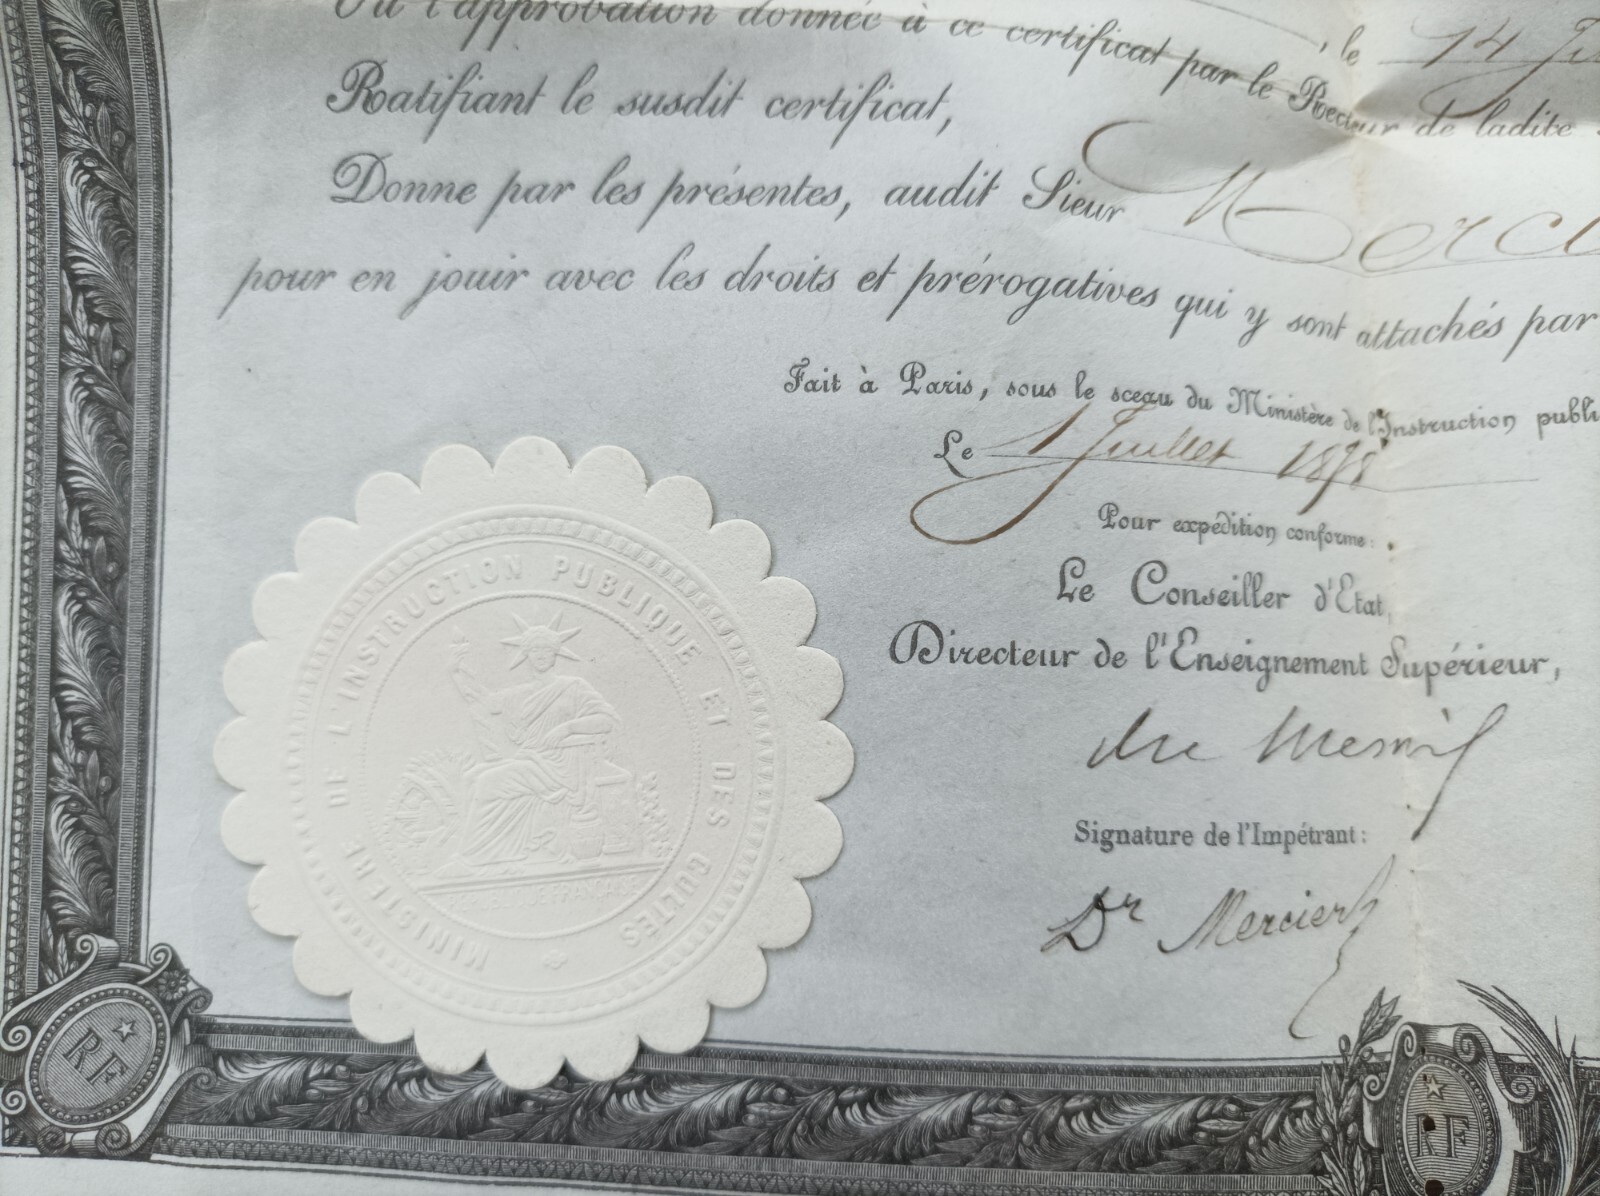 Vu l'approbation donnée à ce certificat par le Recteur de ladite
, le 14
Ratifiant le susdit certificat,
Donne par les présentes, audit Sieur
pour en jouir avec les droits et prérogatives qui y sont attachés par
Fait à Paris, sous le sceau du Ministère de l'Instruction publi
Le 1 Juillet 1878
Pour expédition conforme :
Le Conseiller d'Etat,
Directeur de l'Enseignement Supérieur,
du Mesnil
Signature de l'Impétrant :
Dr Mercier
MINISTERE DE L'INSTRUCTION PUBLIQUE ET DES CULTES
REPUBLIQUE FRANCAISE
RF
RF